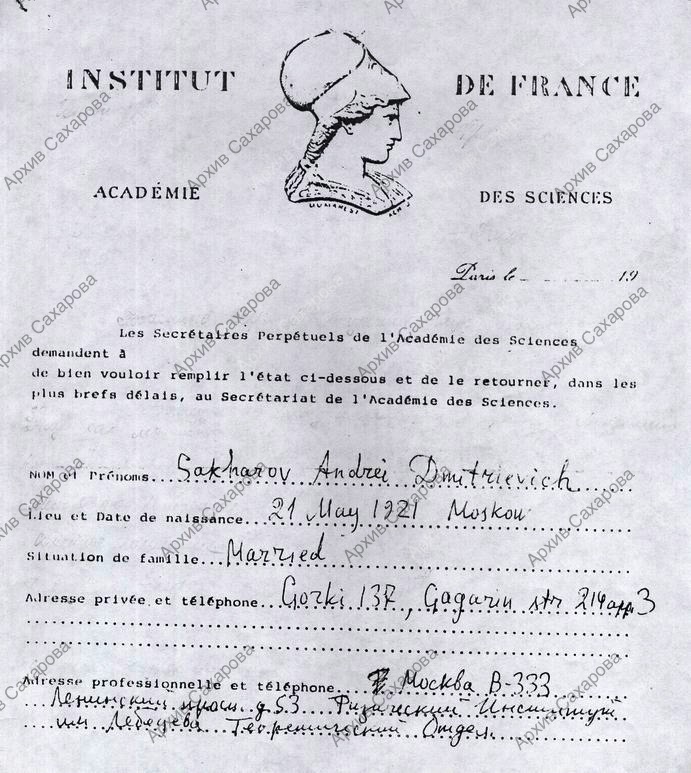 INSTITUT DE FRANCE
ACADÉMIE DES SCIENCES
Paris le 19
Les Secrétaires Perpétuels de l'Académie des Sciences
demandent à
de bien vouloir remplir l'état ci-dessous et de le retourner, dans les
plus brefs délais, au Secrétariat de l'Académie des Sciences.
NOM et Prénoms... Sakharov Andrei Dmitrievich
Lieu et Date de naissance... 21 May 1921 Moskow
Situation de famille... Married
Adresse privée et téléphone... Gorki 137, Gagarin str 214 app. 3
Adresse professionnelle et téléphone... Москва В-333
Ленинский просп. д. 53 Физический Институт
им Лебедева Теоретический Отдел.
Архив Сахарова